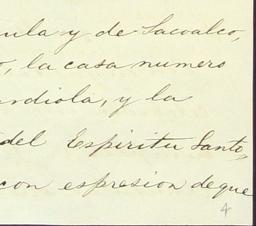 ula y de Sacoalco,
o, la casa numero
ardiola, y la
del Espiritu Santo,
con espresion de que
4